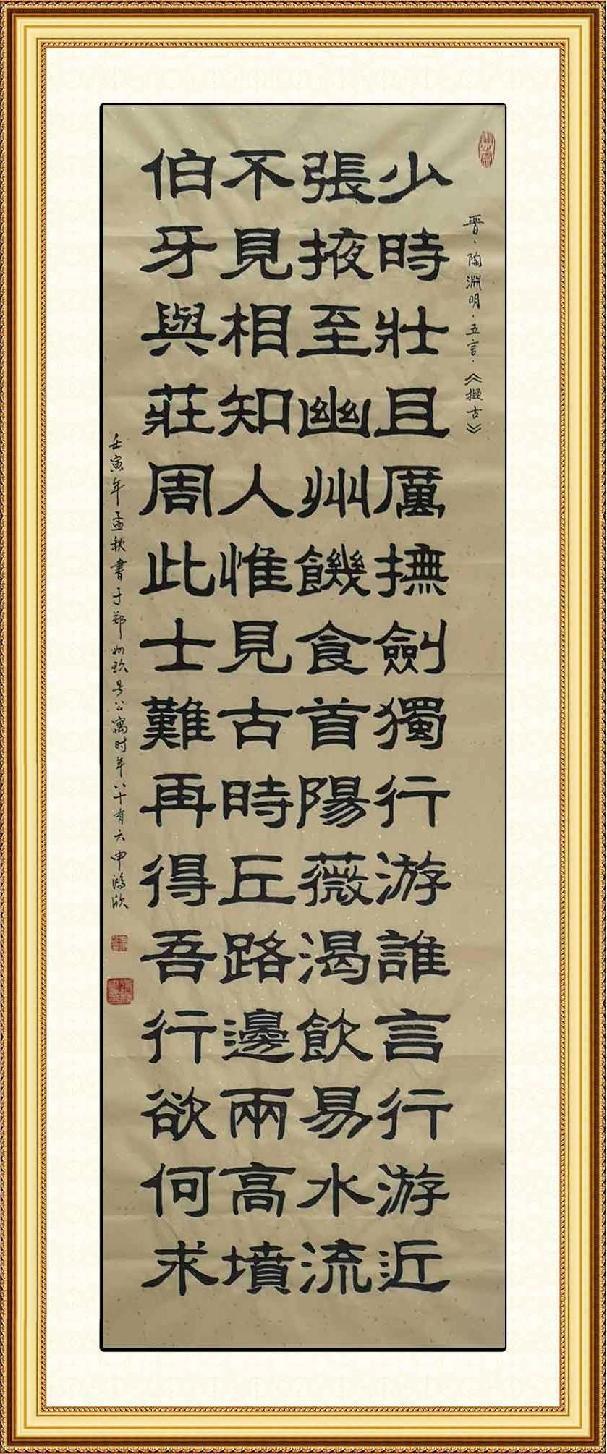 晉·陶淵明·五言·《擬古》
少時壯且厲撫劍獨行游誰言行游近
張掖至幽州饑食首陽薇渴飲易水流
不見相知人惟見古時丘路邊兩高墳
伯牙與莊周此士難再得吾行欲何求
壬寅年孟秋書于郑州玖号公寓时年八十有六申